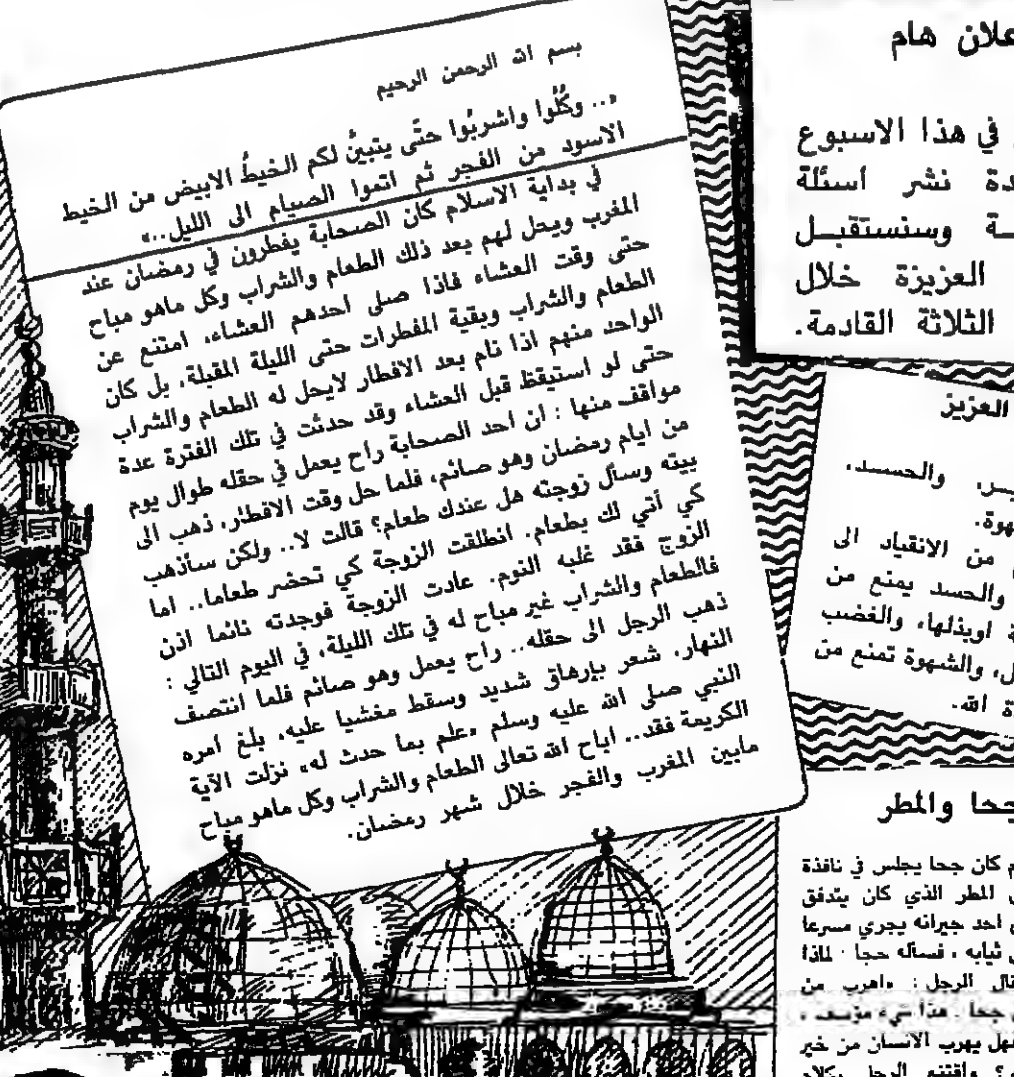 بسم الله الرحمن الرحيم
«.. وكُلُوا واشربُوا حتّى يتبينُ لكم الخيطُ الابيض من الخيط
الاسود من الفجر ثم اتموا الصيام الى الليل..»
في بداية الاسلام كان الصحابة يفطرون في رمضان عند
المغرب ويحل لهم بعد ذلك الطعام والشراب وكل ماهو مباح
حتى وقت العشاء فاذا صلى احدهم العشاء، امتنع عن
الطعام والشراب وبقية المفطرات حتى الليلة المقبلة، بل كان
الواحد منهم اذا نام بعد الافطار لايحل له الطعام والشراب
حتى لو استيقظ قبل العشاء وقد حدثت في تلك الفترة عدة
مواقف منها : ان احد الصحابة راح يعمل في حقله طوال يوم
من ايام رمضان وهو صائم، فلما حل وقت الافطار، ذهب الى
بيته وسأل زوجته هل عندك طعام؟ قالت لا.. ولكن سأذهب
كي آتي لك بطعام. انطلقت الزوجة كي تحضر طعاما.. اما
الزوج فقد غلبه النوم. عادت الزوجة فوجدته نائما اذن
فالطعام والشراب غير مباح له في تلك الليلة، في اليوم التالي :
ذهب الرجل الى حقله.. راح يعمل وهو صائم فلما انتصف
النهار، شعر بإرهاق شديد وسقط مغشيا عليه، بلغ امره
النبي صلى الله عليه وسلم «علم بما حدث له» نزلت الآية
الكريمة فقد.. اباح الله تعالى الطعام والشراب وكل ماهو مباح
مابين المغرب والفجر خلال شهر رمضان.
علان هام
في هذا الاسبوع
دة نشر اسئلة
ـة وسنستقبل
العزيزة خلال
الثلاثة القادمة.
العزيز
ـر، والحسد،
هوة.
من الانقياد الى
والحسد يمنع من
ة اوبذلها، والغضب
ل، والشهوة تمنع من
ة الله.
جحا والمطر
م كان جحا يجلس في نافذة
المطر الذي كان يتدفق
احد جيرانه يجري مسرعا
ثيابه ، فسأله حجا : لماذا
قال الرجل : «اهرب من
جحا . هذا شيء مؤسف ،
فهل يهرب الانسان من خير
؟ واقتنع الرجل بكلام